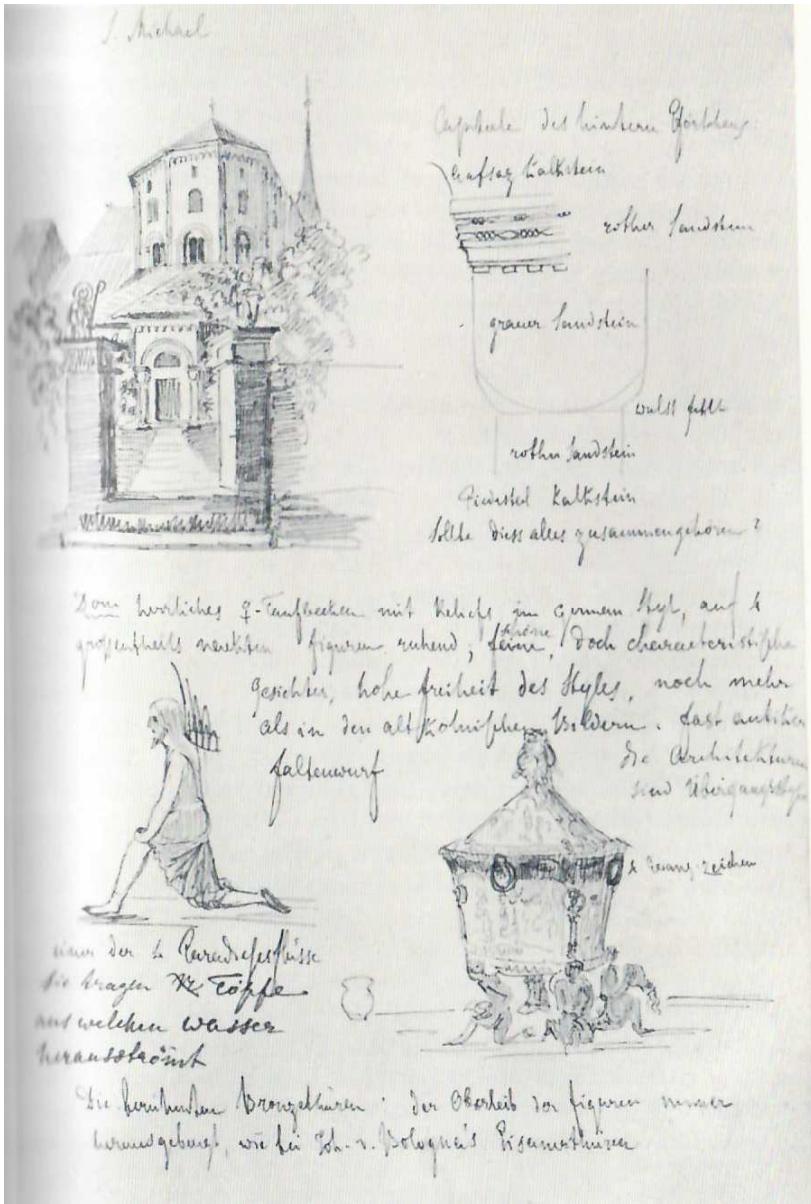 S. Michael
Capitäle des hinteren Pförtchens.
Aufsaz Kalkstein
rother Sandstein
grauer Sandstein
wulst fehlt
rother Sandstein
Piedestal Kalkstein
Sollte diess alles zusammengehören?
Dom herrliches Taufbecken mit Reliefs, im Styl, auf 4
grossentheils nackten Figuren ruhend; feine, schöne doch characteristische
Gesichter, hohe Freiheit des Styles, noch mehr
als in den altkölnischen Bildern. fast antiker
Faltenwurf
die Architekturen
sind Übergangsstyl
4 zeichen
einer der 4 Paradiesesflüsse
sie tragen Töpfe
aus welchen wasser
herausströmt
Die berühmten Bronzethüren: der Oberleib der Figuren immer
herausgebeugt, wie bei Joh. v. Bologna's